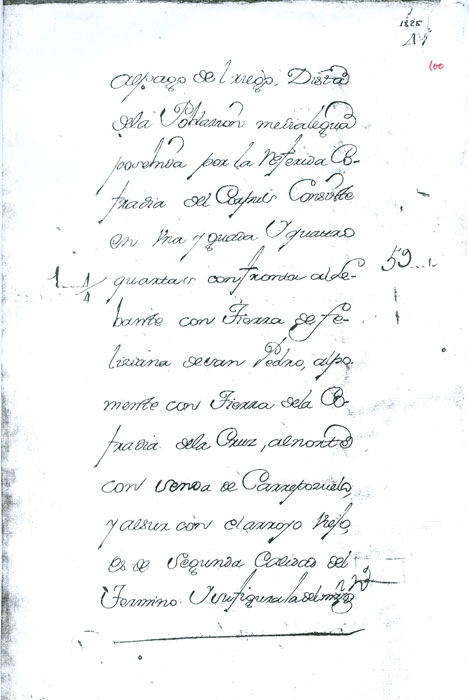 1825
100
al pago del xiego, Dista
dela Poblazion media legua
posehida por la Referida Co-
fradia del Corpus Consiste
en Una yguada Y quattro
1 1/4 quartas confronta al Le- 59
bante con Tierra de Fe-
liziana de san Pedro, al po-
niente con Tierra dela Co-
fradia dela Cruz, al norte
con senda de Carrepozuelo,
y al sur con el arroyo Viejo,
es de Segunda Calidad del
Termino. Y su figura la del